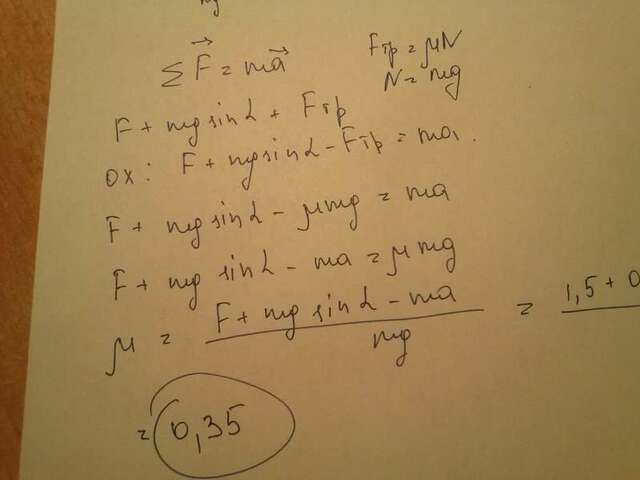 ∑F⃗ = ma⃗
Fтр = μN
N = mg
F + mg sinα + Fтр
OX: F + mg sinα - Fтр = ma.
F + mg sinα - μmg = ma
F + mg sinα - ma = μmg
μ = (F + mg sinα - ma) / mg = 1,5 + 0
= 0,35